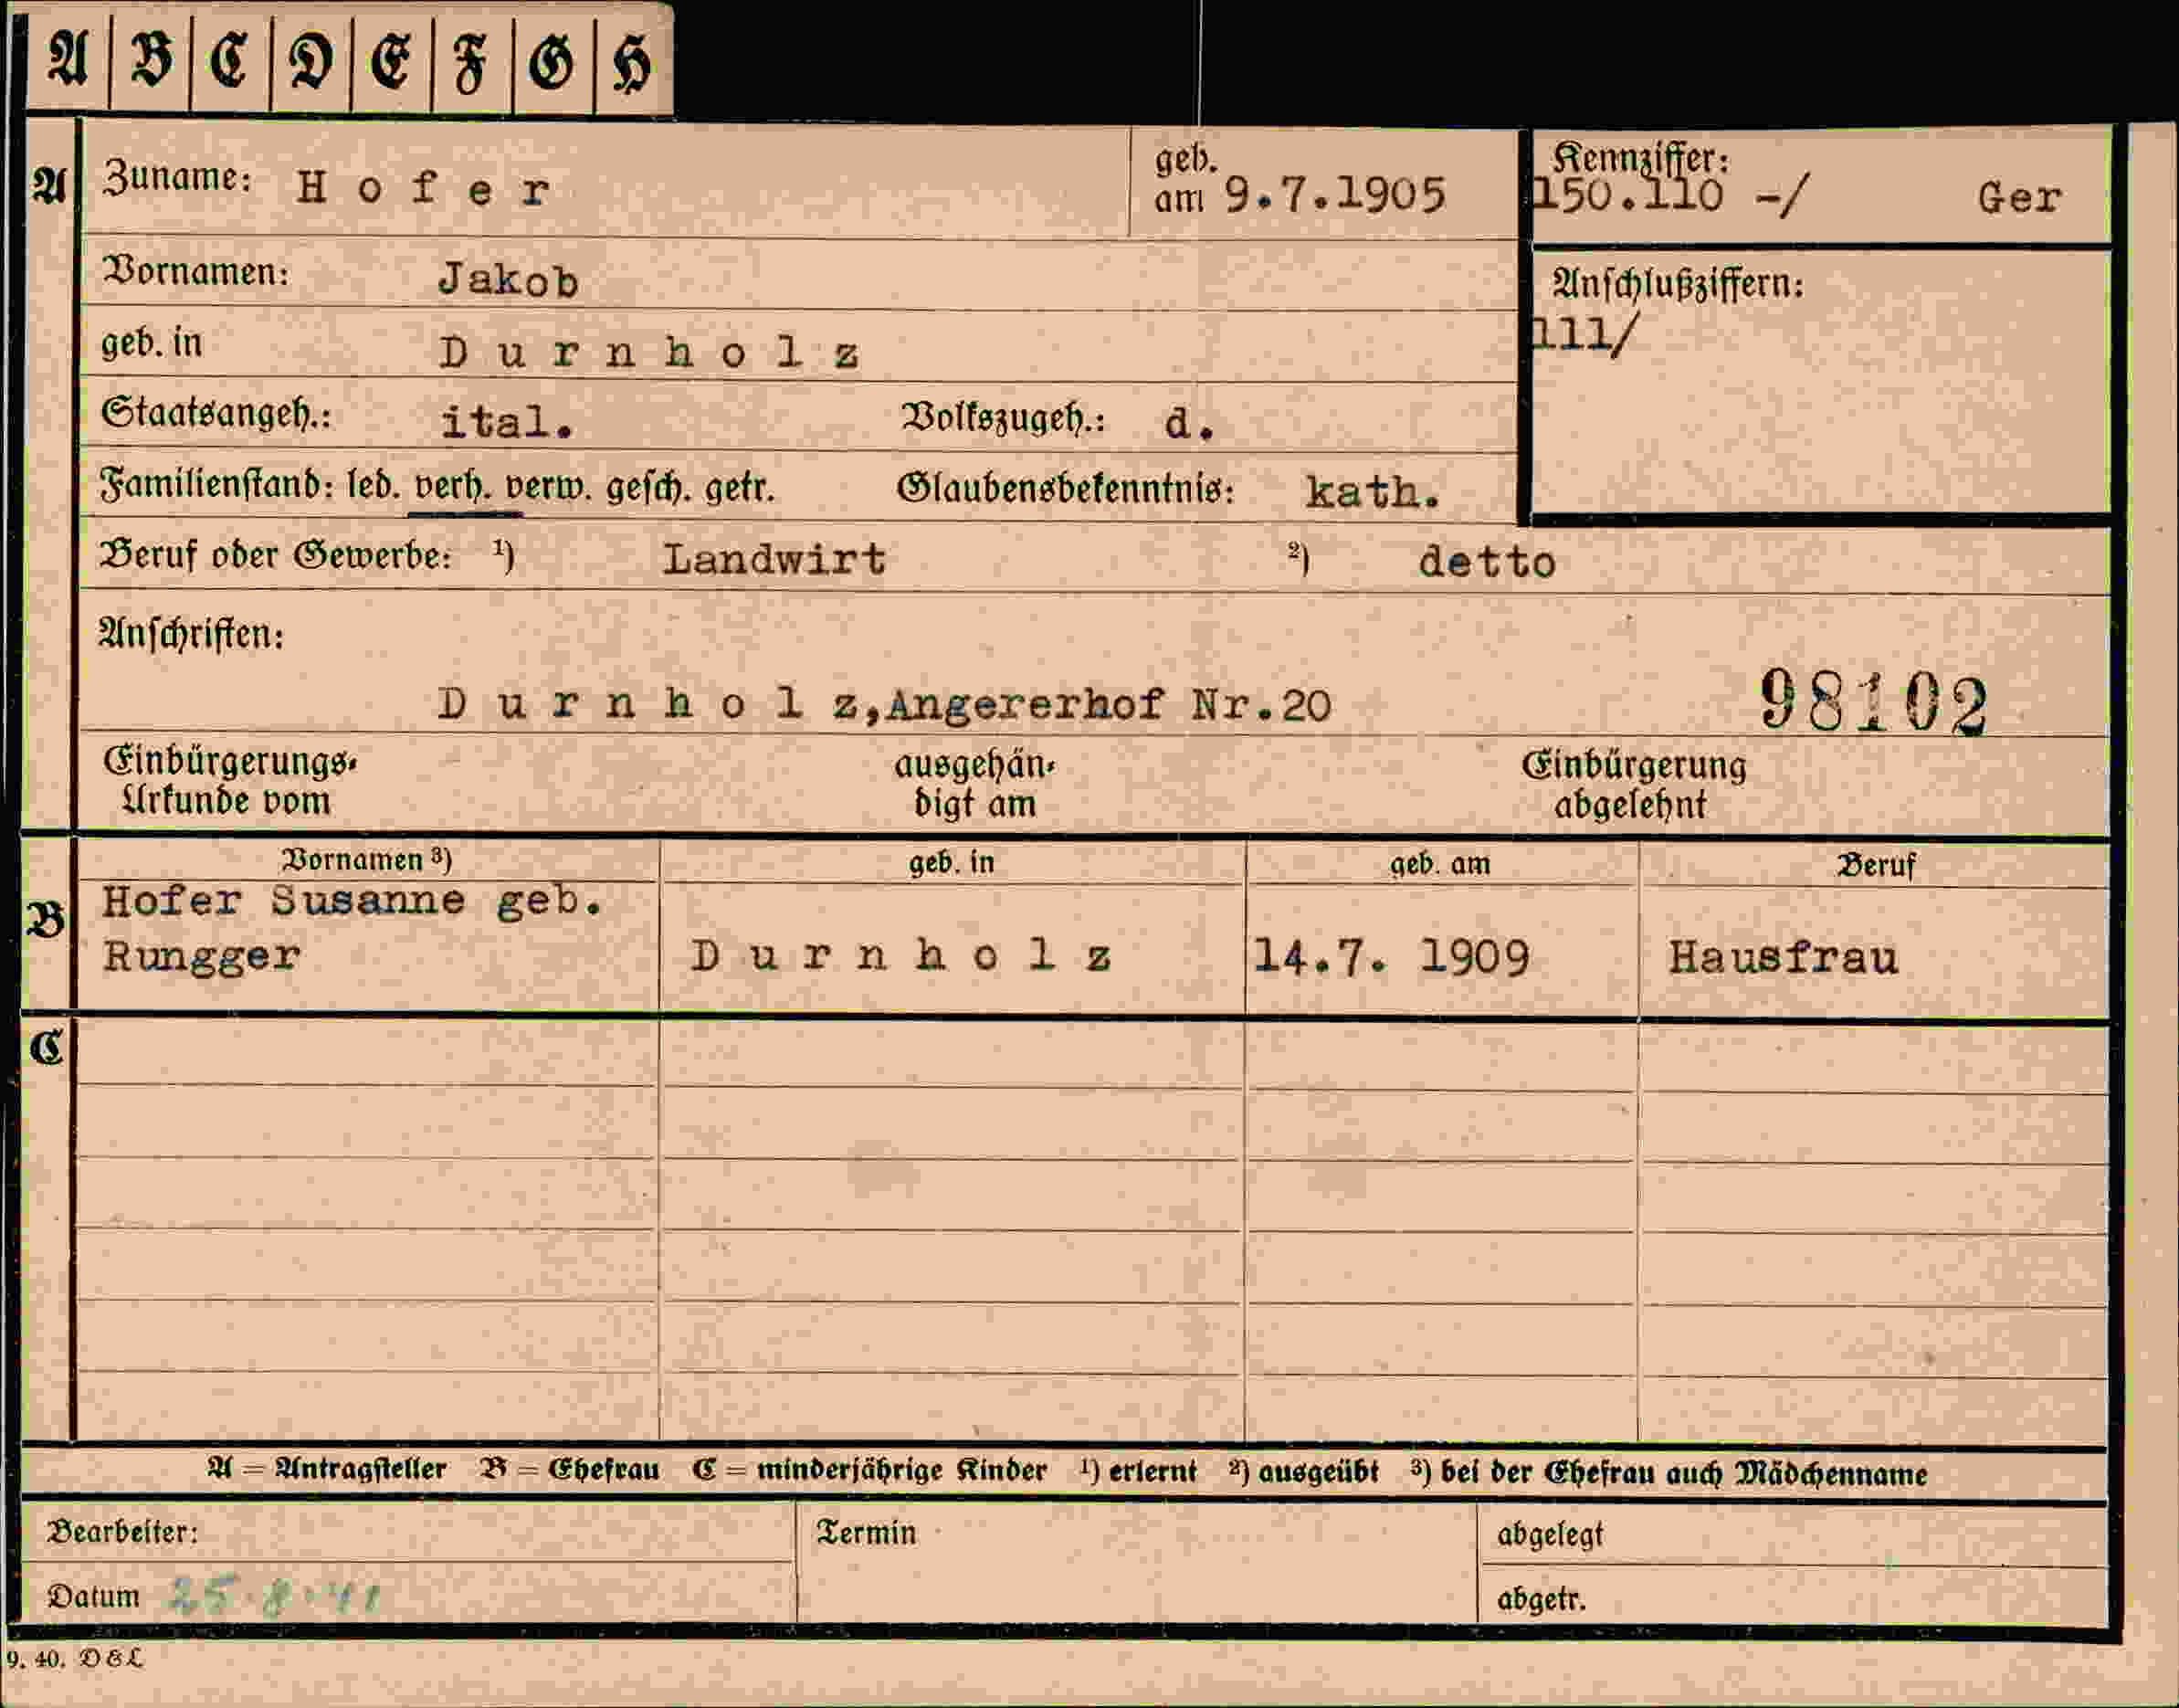 A B C D E F G H
A Zuname: H o f e r geb. am 9.7.1905 Kennziffer: 150.110 -/ Ger
Vornamen: Jakob Anschlußziffern:
geb. in D u r n h o l z 111/
Staatsangeh.: ital. Volkszugeh.: d.
Familienstand: led. verh. verw. gesch. getr. Glaubensbekenntnis: kath.
Beruf oder Gewerbe: 1) Landwirt 2) detto
Anschriften:
D u r n h o l z,Angererhof Nr.20 98102
Einbürgerungs- ausgehän- Einbürgerung
Urkunde vom digt am abgelehnt
Vornamen 3) geb. in geb. am Beruf
B Hofer Susanne geb.
Rungger D u r n h o l z 14.7. 1909 Hausfrau
C
A = Antragsteller B = Ehefrau C = minderjährige Kinder 1) erlernt 2) ausgeübt 3) bei der Ehefrau auch Mädchenname
Bearbeiter: Termin abgelegt
Datum 25.8.41 abgetr.
9. 40. D&L